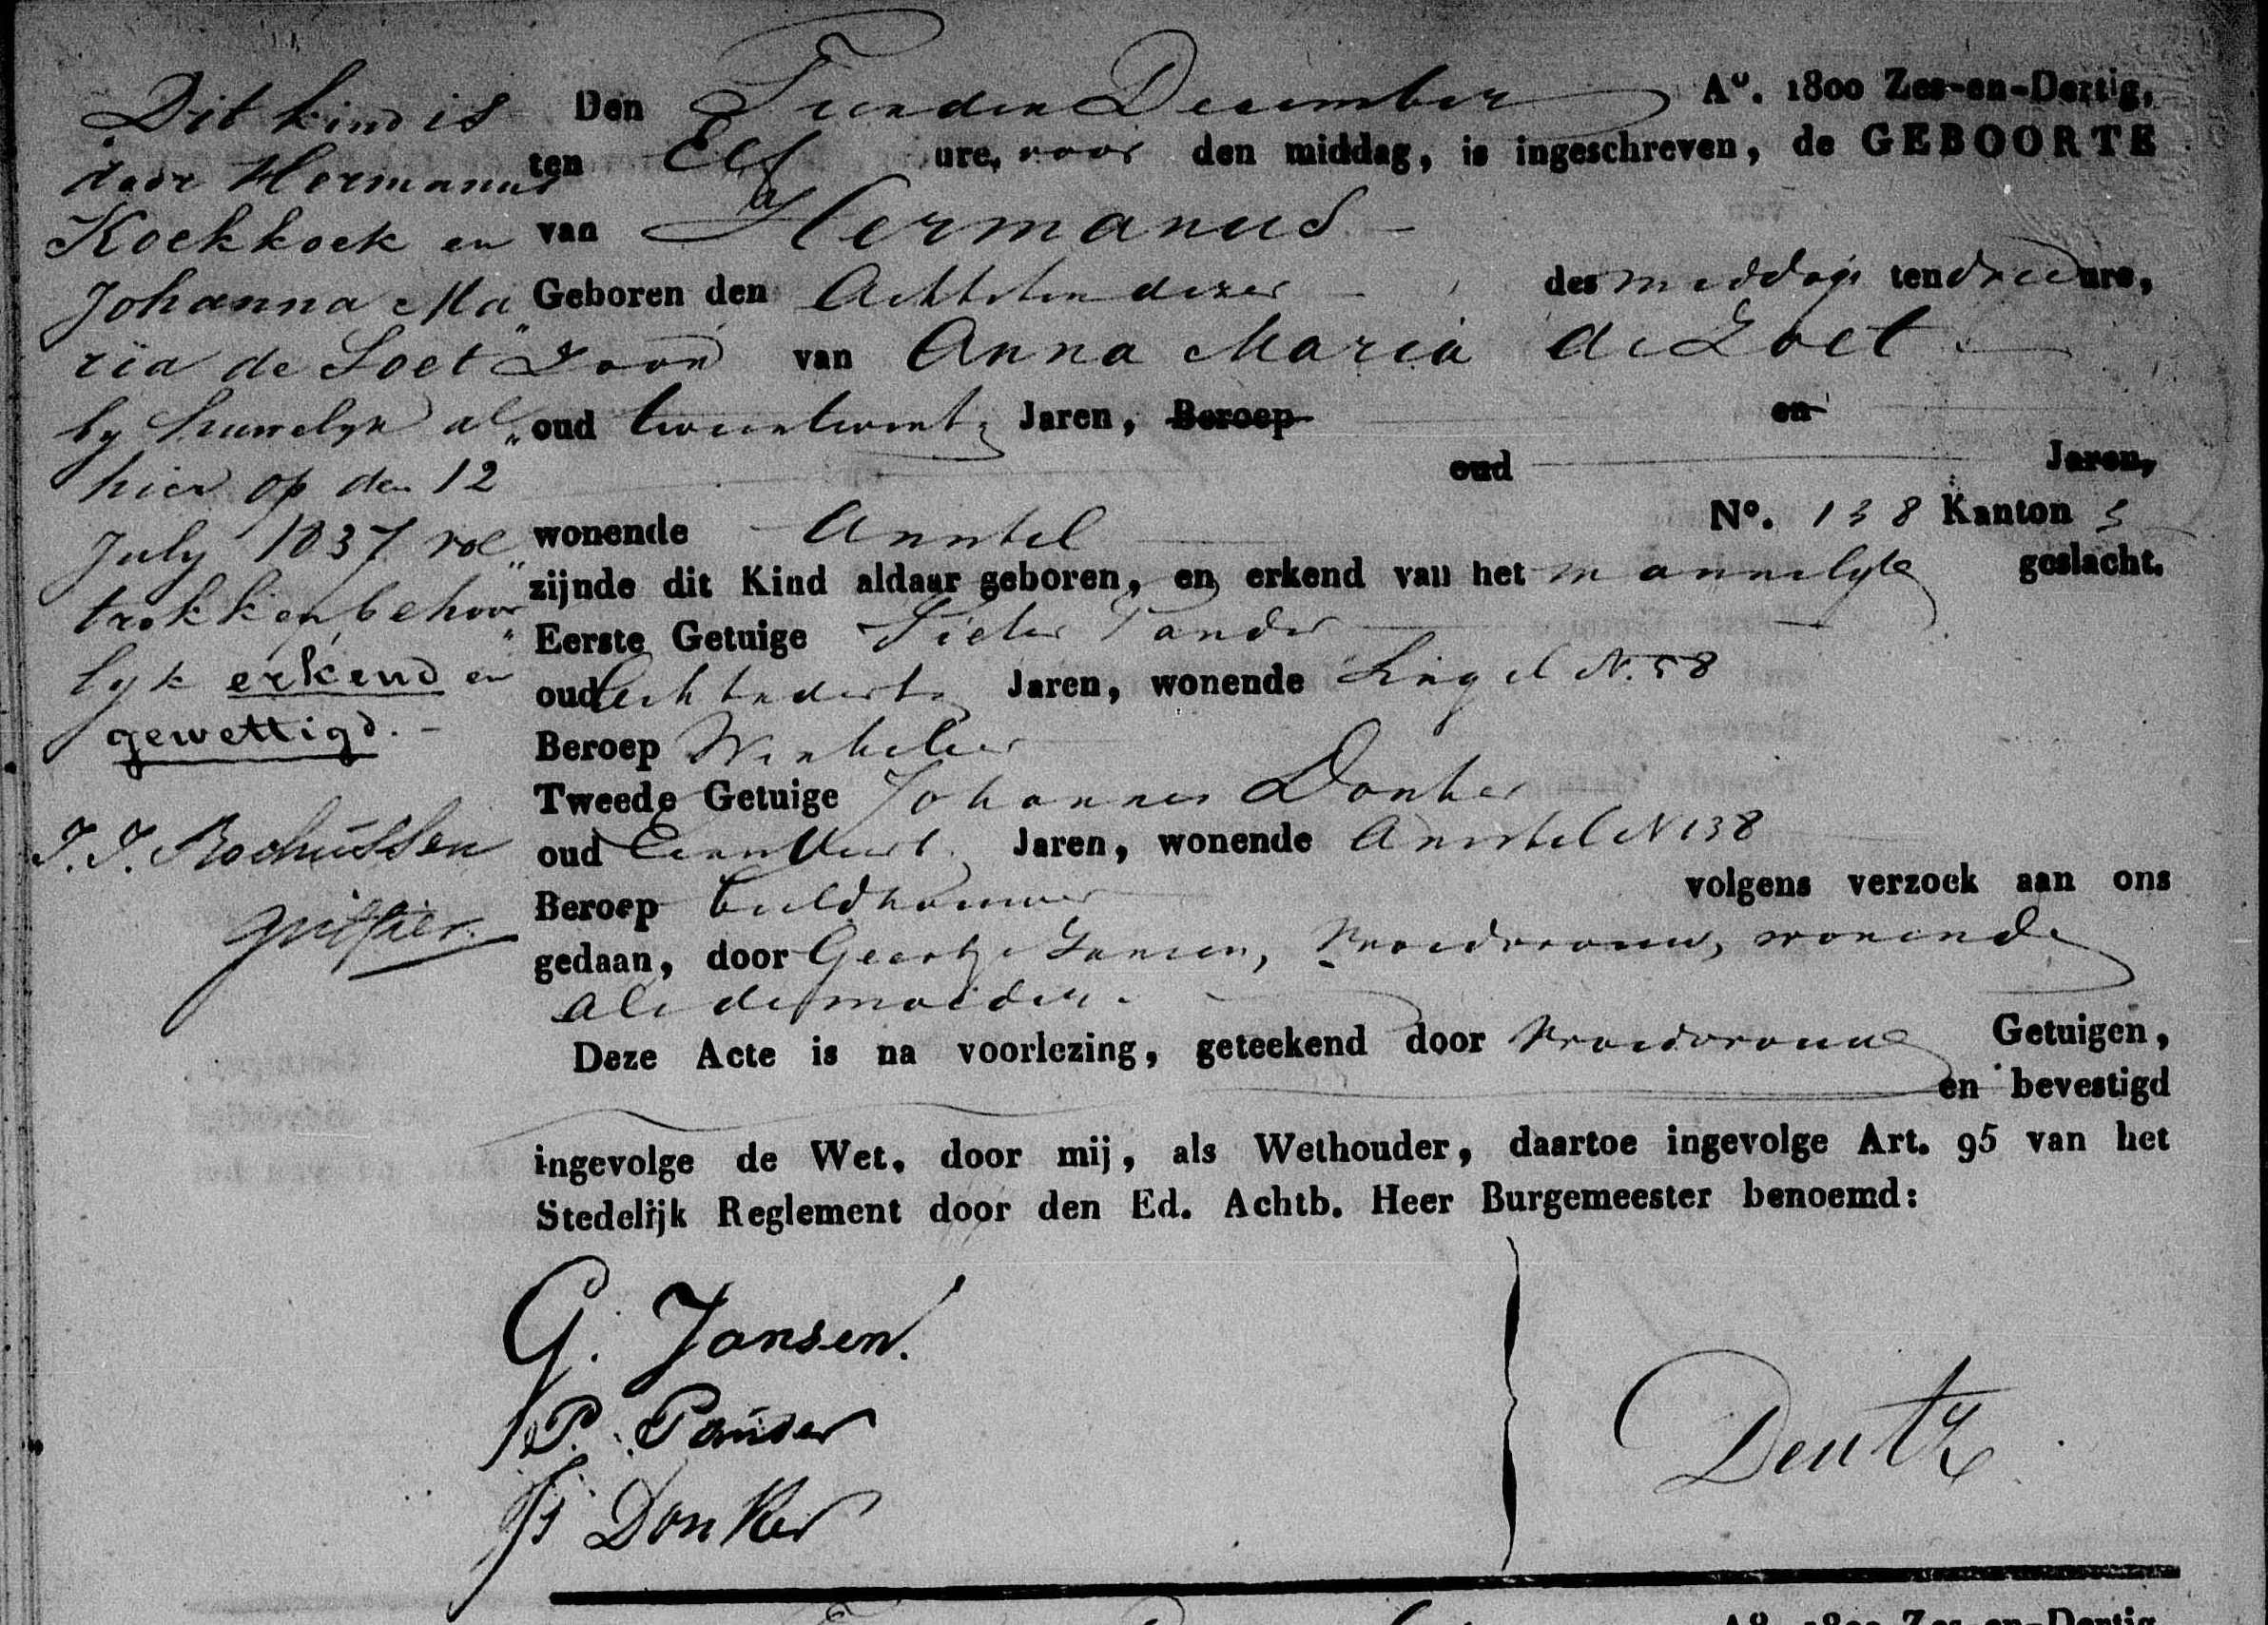 Dit kind is
door Hermanus
Koekkoek en
Johanna Ma„
ria de Soet
by huwelyk al„
hier op den 12
July 1837 vol„
trokken, behoor„
lyk erkend en
gewettigd. -
J. J. Rochussen
griffier.
Den Tienden December Aº. 1800 Zes-en-Dertig,
ten Elf ure, voor den middag, is ingeschreven, de GEBOORTE
van Hermanus
Geboren den Achtsten dezer des middags ten drie ure,
Zoon van Anna Maria de Zoet
oud tweentwintig Jaren, Beroep en
oud Jaren,
wonende Amstel Nº. 138 Kanton 3
zijnde dit Kind aldaar geboren, en erkend van het mannelyke geslacht.
Eerste Getuige Pieter Pander
oud Achtendertig Jaren, wonende Singel N. 58
Beroep Winkelier
Tweede Getuige Johannes Donker
oud Eenenveertig Jaren, wonende Amstel N 138
Beroep beeldhouwer volgens verzoek aan ons
gedaan, door Geertje Jansen, Vroedvrouw, wonende
als de moeder.
Deze Acte is na voorlezing, geteekend door Vroedvrouw Getuigen,
en bevestigd
ingevolge de Wet, door mij, als Wethouder, daartoe ingevolge Art. 95 van het
Stedelijk Reglement door den Ed. Achtb. Heer Burgemeester benoemd:
G. Jansen.
P. Pander
Js Donker
Deutz
Aº. 1800 Zes-en-Dertig